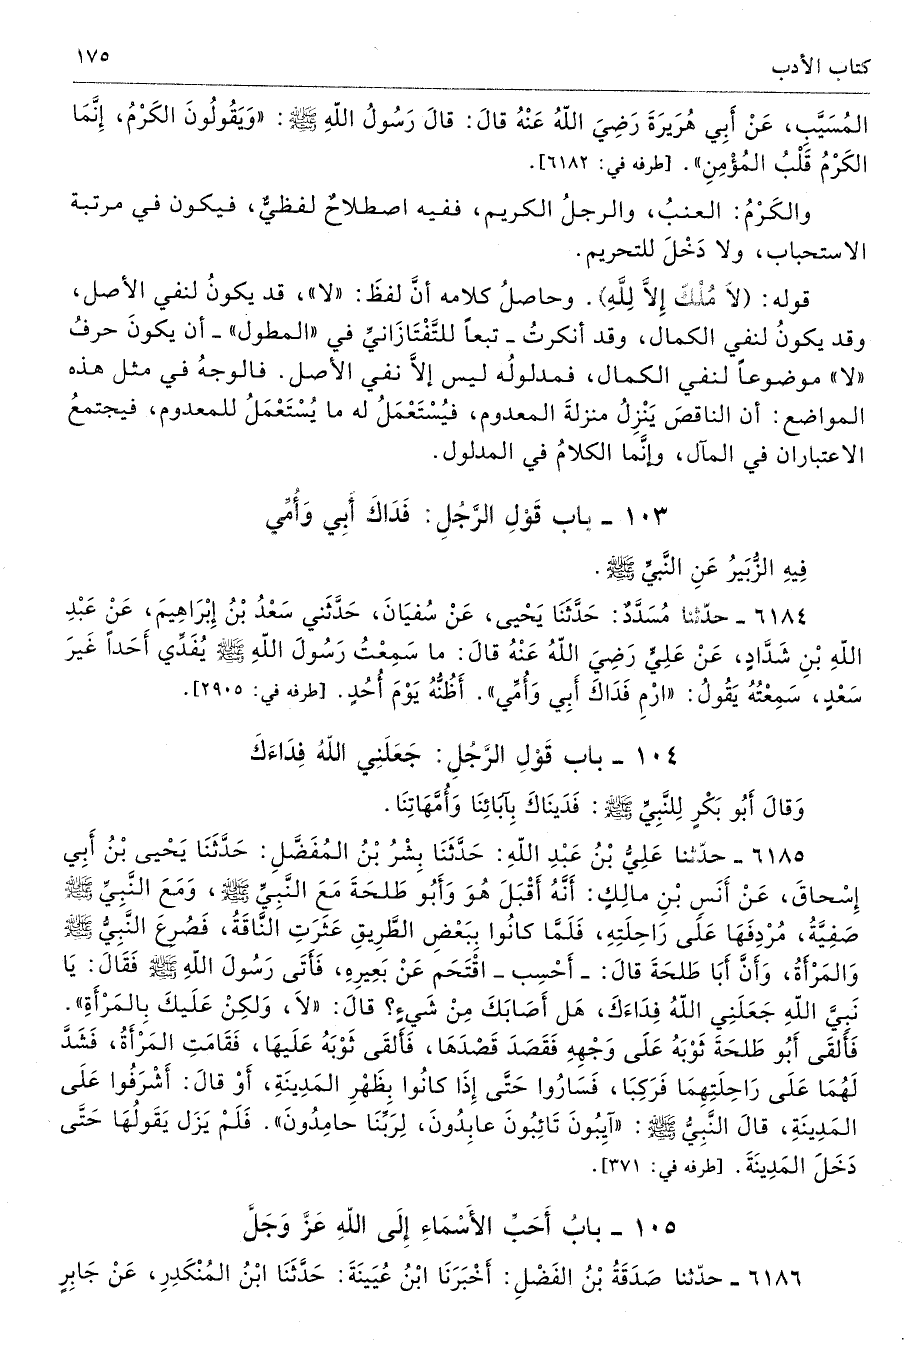 كتاب الأدب ١٧٥
المُسَيَّبِ، عَنْ أَبِي هُرَيرَةَ رَضِيَ اللّهُ عَنْهُ قالَ: قالَ رَسُولُ اللّهِ ﷺ: «وَيَقُولُونَ الكَرْمُ، إِنَّمَا
الكَرْمُ قَلْبُ المُؤْمِنِ». [طرفه في: ٦١٨٢].
والكَرْمُ: العنبُ، والرجلُ الكريم، ففيه اصطلاحٌ لفظيٌّ، فيكون في مرتبة
الاستحباب، ولا دَخْلَ للتحريم.
قوله: (لاَ مُلْكَ إِلاَّ لِلَّهِ). وحاصلُ كلامه أنَّ لفظَ: «لا»، قد يكونُ لنفي الأصل،
وقد يكونُ لنفي الكمال، وقد أنكرتُ ـ تبعاً للتَّفْتَازَانيِّ في «المطول» ـ أن يكونَ حرفُ
«لا» موضوعاً لنفي الكمال، فمدلولُه ليس إلاَّ نفي الأصل. فالوجهُ في مثل هذه
المواضع: أن الناقصَ يَنْزِلُ منزلةَ المعدوم، فيُسْتَعْمَلُ له ما يُسْتَعْمَلُ للمعدوم، فيجتمعُ
الاعتباران في المآل، وإنَّما الكلامُ في المدلول.
١٠٣ ـ باب قَوْلِ الرَّجُلِ: فَدَاكَ أَبِي وَأُمِّي
فِيهِ الزُّبَيرُ عَنِ النَّبِيِّ ﷺ.
٦١٨٤ ـ حدّثنا مُسَدَّدٌ: حَدَّثَنَا يَحْيى، عَنْ سُفيَانَ، حَدَّثَني سَعْدُ بْنُ إِبْرَاهِيمَ، عَنْ عَبْدِ
اللّهِ بْنِ شَدَّادٍ، عَنْ عَلِيٍّ رَضِيَ اللّهُ عَنْهُ قالَ: ما سَمِعْتُ رَسُولَ اللّهِ ﷺ يُفَدِّي أَحَداً غَيرَ
سَعْدٍ، سَمِعْتُهُ يَقُولُ: «ارْمِ فَدَاكَ أَبِي وَأُمِّي». أَظُنُّهُ يَوْمَ أُحُدٍ. [طرفه في: ٢٩٠٥].
١٠٤ ـ باب قَوْلِ الرَّجُلِ: جَعَلَنِي اللّهُ فِدَاءَكَ
وَقالَ أَبُو بَكْرٍ لِلنَّبِيِّ ﷺ: فَدَينَاكَ بِآبَائِنَا وَأُمَّهَاتِنَا.
٦١٨٥ ـ حدّثنا عَلِيُّ بْنُ عَبْدِ اللّهِ: حَدَّثَنَا بِشْرُ بْنُ المُفَضَّلِ: حَدَّثَنَا يَحْيى بْنُ أَبِي
إِسْحاقَ، عَنْ أَنَسِ بْنِ مالِكٍ: أَنَّهُ أَقْبَلَ هُوَ وَأَبُو طَلحَةَ مَعَ النَّبِيِّ ﷺ، وَمَعَ النَّبِيِّ ﷺ
صَفِيَّةُ، مُرْدِفَهَا عَلَى رَاحِلَتِهِ، فَلَمَّا كانُوا بِبَعْضِ الطَّرِيقِ عَثَرَتِ النَّاقَةُ، فَصُرِعَ النَّبِيُّ ﷺ
وَالمَرْأَةُ، وَأَنَّ أَبَا طَلحَةَ قالَ: ـ أَحْسِب ـ اقْتَحَم عَنْ بَعِيرِهِ، فَأَتَى رَسُولَ اللّهِ ﷺ فَقَالَ: يَا
نَبِيَّ اللّهِ جَعَلَنِي اللّهُ فِدَاءَكَ، هَل أَصَابَكَ مِنْ شَيءٍ؟ قالَ: «لاَ، وَلكِنْ عَلَيكَ بِالمَرْأَةِ».
فَأَلقَى أَبُو طَلحَةَ ثَوْبَهُ عَلَى وَجْهِهِ فَقَصَدَ قَصْدَهَا، فَأَلقَى ثَوْبَهُ عَلَيهَا، فَقَامَتِ المَرْأَةُ، فَشَدَّ
لَهُمَا عَلَى رَاحِلَتِهِمَا فَرَكِبَا، فَسَارُوا حَتَّى إِذَا كانُوا بِظَهْرِ المَدِينَةِ، أَوْ قالَ: أَشْرَفُوا عَلَى
المَدِينَةِ، قالَ النَّبِيُّ ﷺ: «آيِبُونَ تَائِبُونَ عابِدُونَ، لِرَبِّنَا حامِدُونَ». فَلَمْ يَزَل يَقُولُهَا حَتَّى
دَخَلَ المَدِينَةَ. [طرفه في: ٣٧١].
١٠٥ ـ بابُ أَحَبِّ الأَسْمَاءِ إِلَى اللّهِ عَزَّ وَجَلَّ
٦١٨٦ ـ حدّثنا صَدَقَةُ بْنُ الفَضْلِ: أَخْبَرَنَا ابْنُ عُيَينَةَ: حَدَّثَنَا ابْنُ المُنْكَدِرِ، عَنْ جَابِرٍ